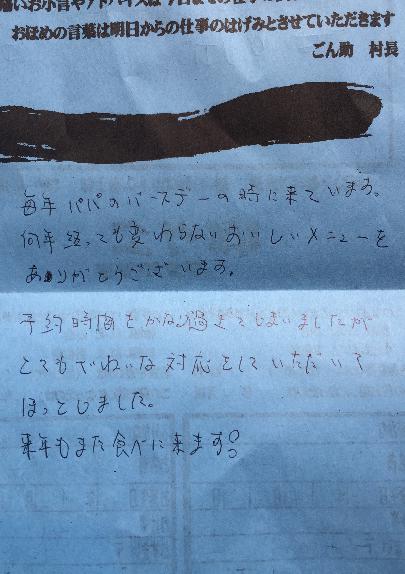 痛いお小言やアドバイスは今日までの仕事の
おほめの言葉は明日からの仕事のはげみとさせていただきます
ごん助 村長
毎年パパのバースデーの時に来ています。
何年経っても変わらないおいしいメニューを
ありがとうございます。
予約時間をかなり過ぎてしまいましたが
とてもていねいな対応をしていただいて
ほっとしました。
来年もまた食べに来ます!!